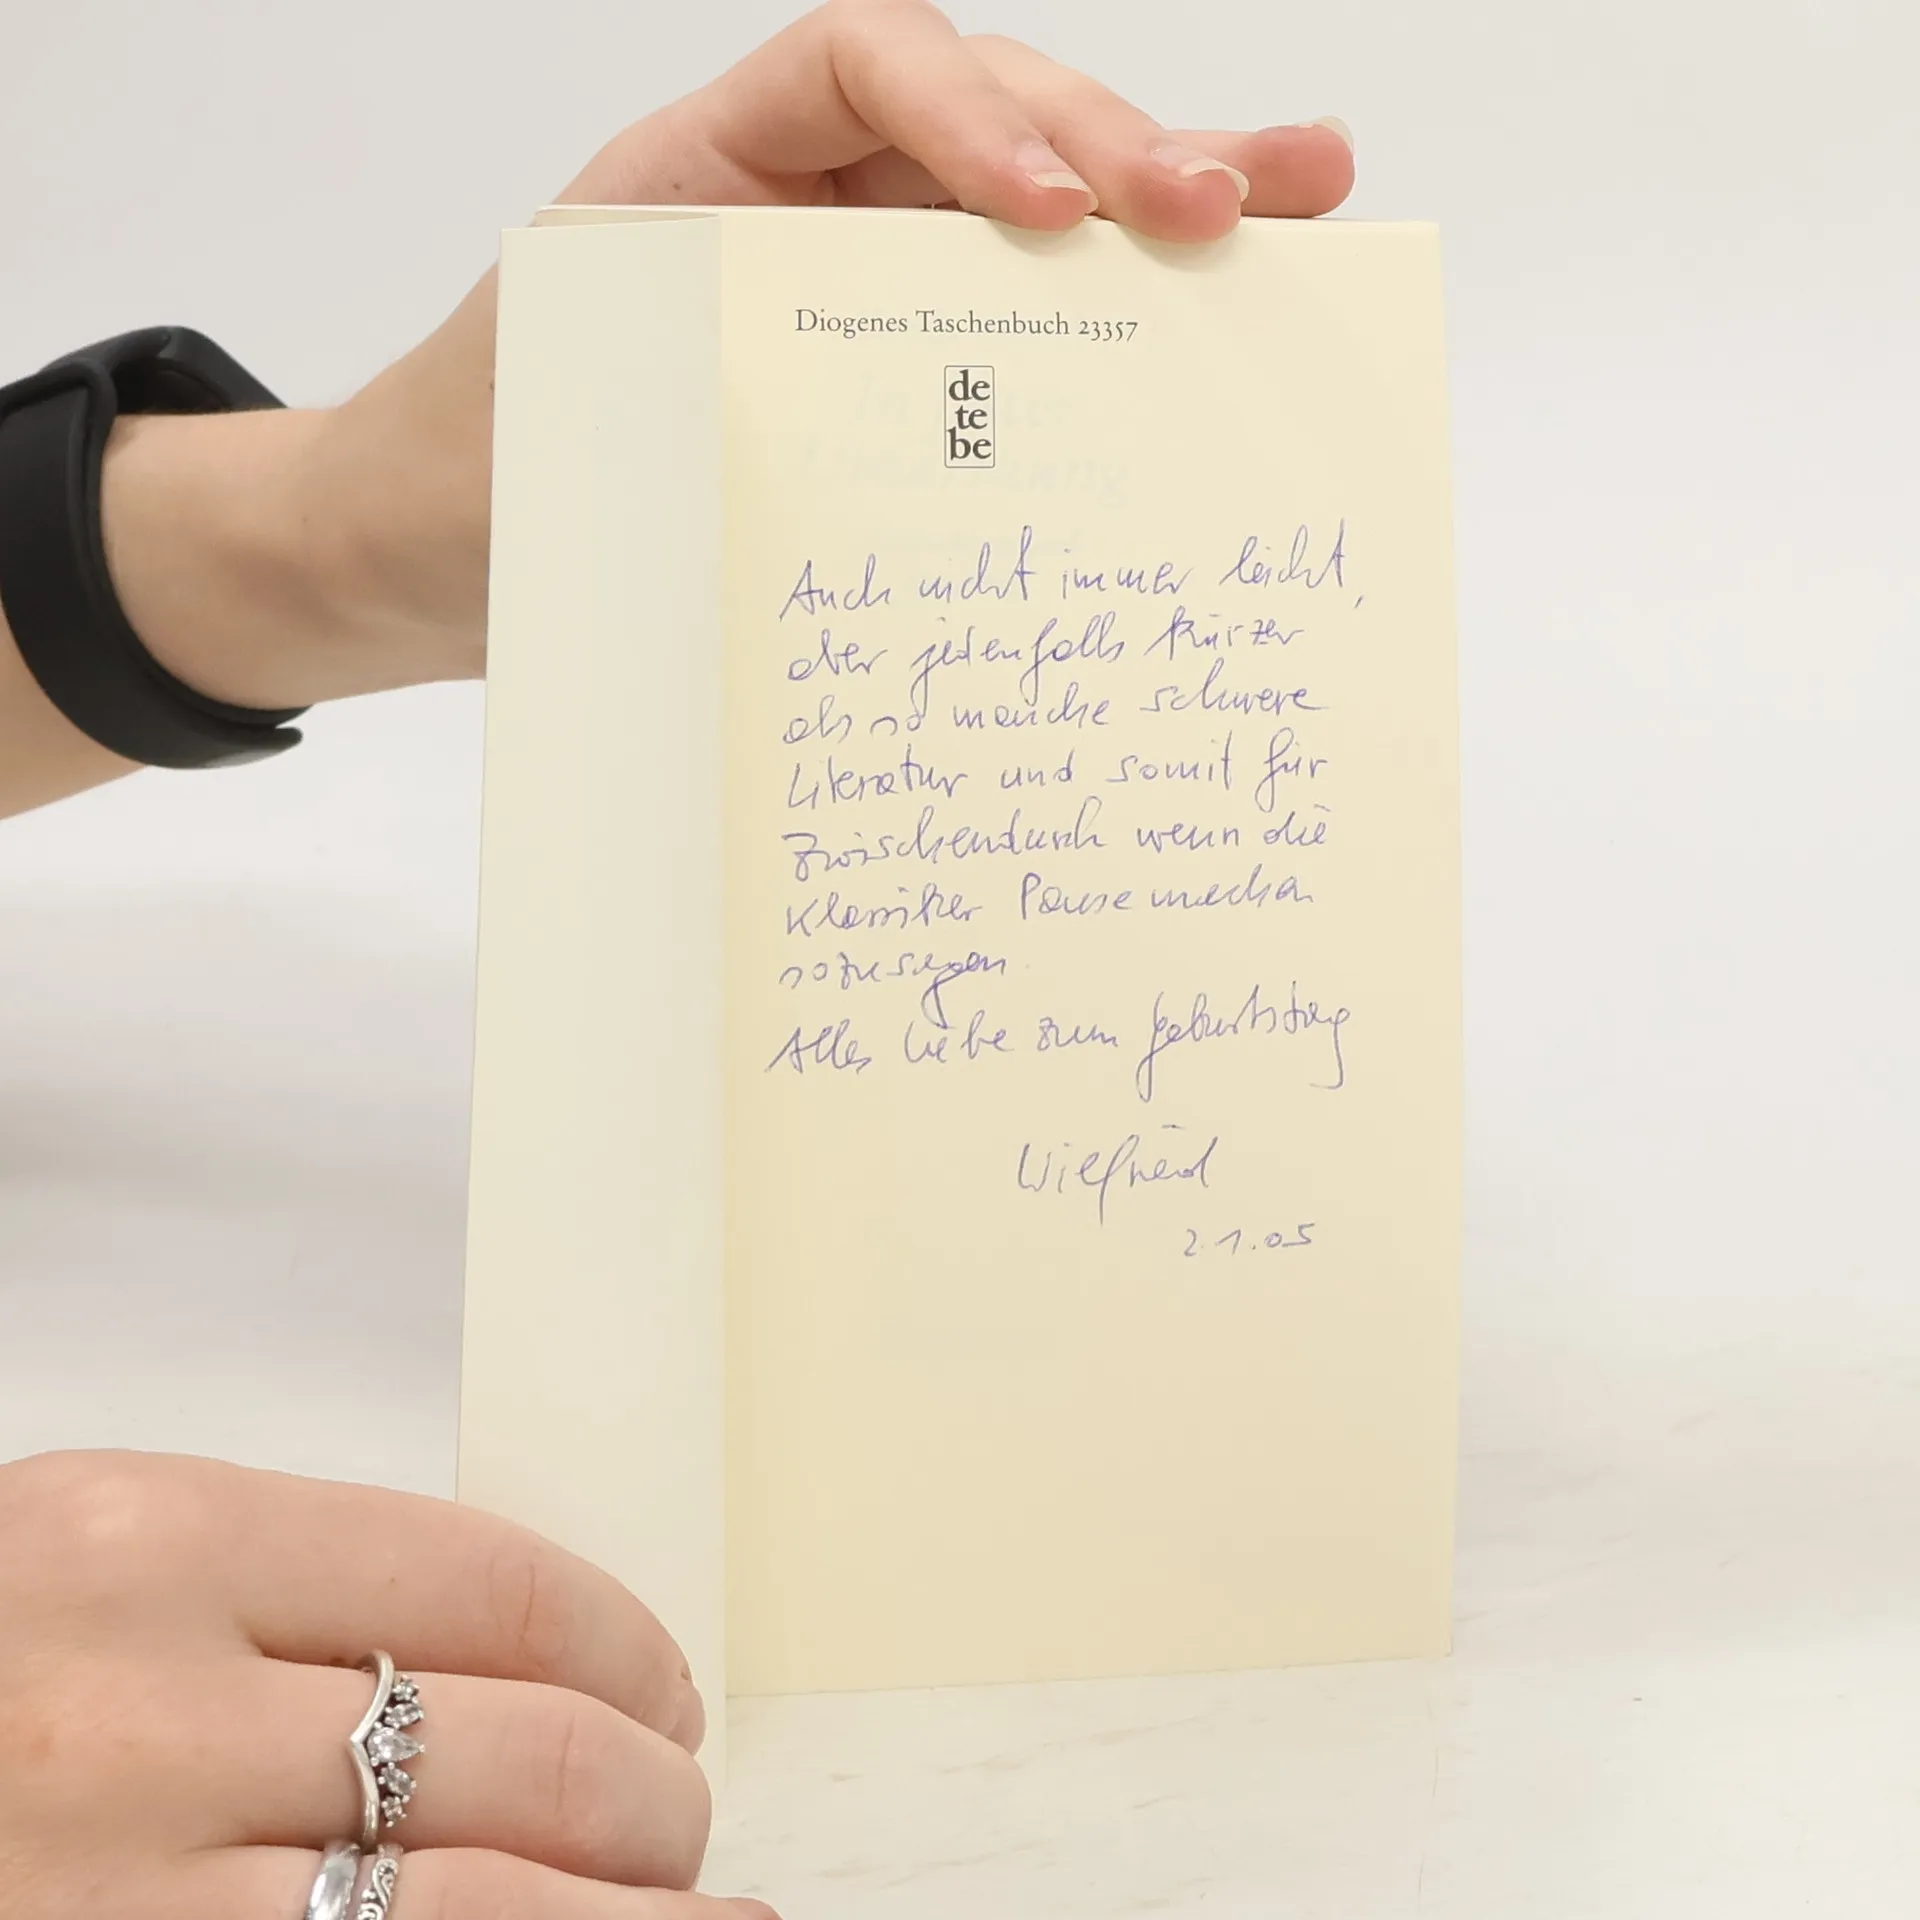 Diogenes Taschenbuch 23357
de
te
be
Auch nicht immer leicht,
aber jedenfalls kürzer
als so manche schwere
Literatur und somit für
Zwischendurch wenn die
Klassiker Pause machen
sozusagen.
Alles Liebe zum Geburtstag
Wilfried
2.1.05